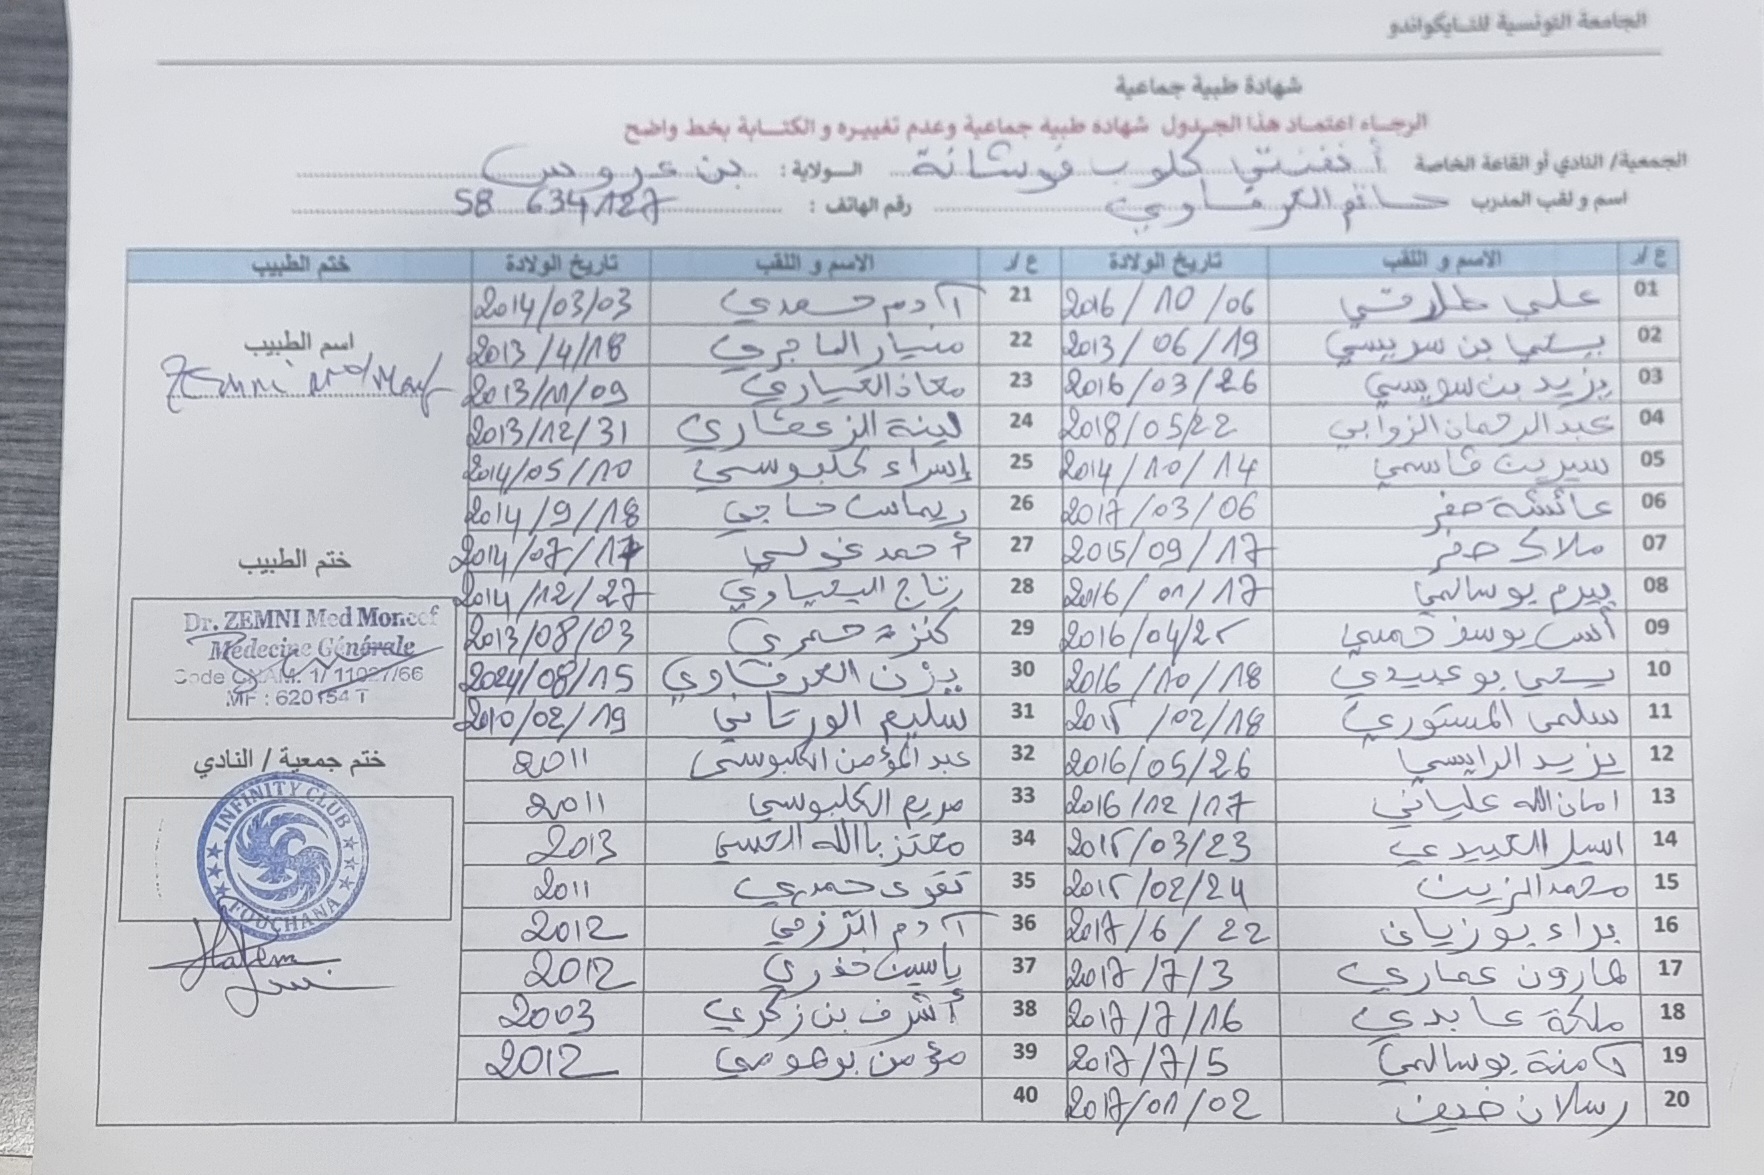 الجامعة التونسية للتايكواندو
شهادة طبية جماعية
الرجاء اعتماد هذا الجدول شهادة طبية جماعية وعدم تغييره و الكتابة بخط واضح
الجمعية/ النادي أو القاعة الخاصة أنفنتي كلوب فوشانة الولاية : بن عروس
اسم و لقب المدرب حاتم العرفاوي رقم الهاتف : 58 634127
ع/ر الاسم و اللقب تاريخ الولادة ع/ر الاسم و اللقب تاريخ الولادة ختم الطبيب
01 علي طلارقي 2016/10/06 21 آدم حمدي 2014/03/03
02 يحي بن سويسي 2013/06/19 22 منيار الماجري 2013/4/18
03 يزيد بن سويسي 2016/03/26 23 معاذ العياري 2013/11/09
04 عبد الرحمان الزوابي 2018/05/22 24 لينة الزعفاري 2013/12/31
05 سيرين قاسمي 2014/10/14 25 إسراء كلبوسي 2014/05/10
06 عائشة صفر 2017/03/06 26 ريماس حاجي 2014/9/18
07 ملاك صفر 2015/09/17 27 أحمد غولي 2014/07/17
08 بيرم بوسالمي 2016/01/17 28 رتاج اليحياوي 2014/12/27
09 أنس يوسف خميسي 2016/04/25 29 كنزة حمري 2013/08/03
10 يحي بوعبيدي 2016/10/18 30 يزن العرفاوي 2024/08/15
11 سلمى المستوري 2015/02/18 31 سليم الورتاني 2010/02/19
12 يزيد الرايسي 2016/05/26 32 عبد المؤمن الكلبوسي 2011
13 امان الله علياني 2016/12/17 33 مريم الكلبوسي 2011
14 اسيل العبيدي 2015/03/23 34 معتز باالله الحسي 2013
15 محمد الزين 2015/02/24 35 تقوى حمدي 2011
16 براء بوزيان 2017/6/22 36 آدم الترزمي 2012
17 هارون عماري 2017/7/3 37 ياسين خذري 2012
18 ملكة عابدي 2017/7/16 38 أشرف بن زكري 2003
19 آمنة بوسالمي 2017/7/5 39 مؤمن برهومي 2012
20 رسلان ضيف 2017/01/02 40
اسم الطبيب
Zemni Med Moncef
ختم الطبيب
Dr. ZEMNI Med Moncef
Médecine Générale
Code CNAM: 1/11027/66
MF : 620154 T
ختم جمعية / النادي
INFINITY CLUB
FOUCHANA
Hatem